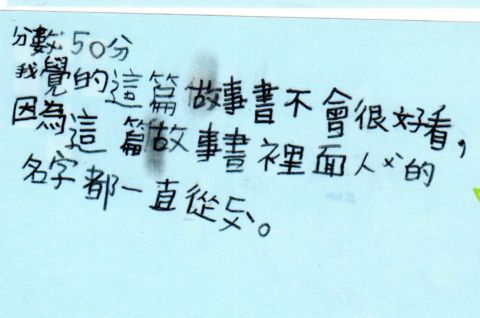 分數50分
我覺的這篇故事書不會很好看，
因為這篇故事書裡面人ㄨˋ的
名字都一直從ㄈㄨˋ。